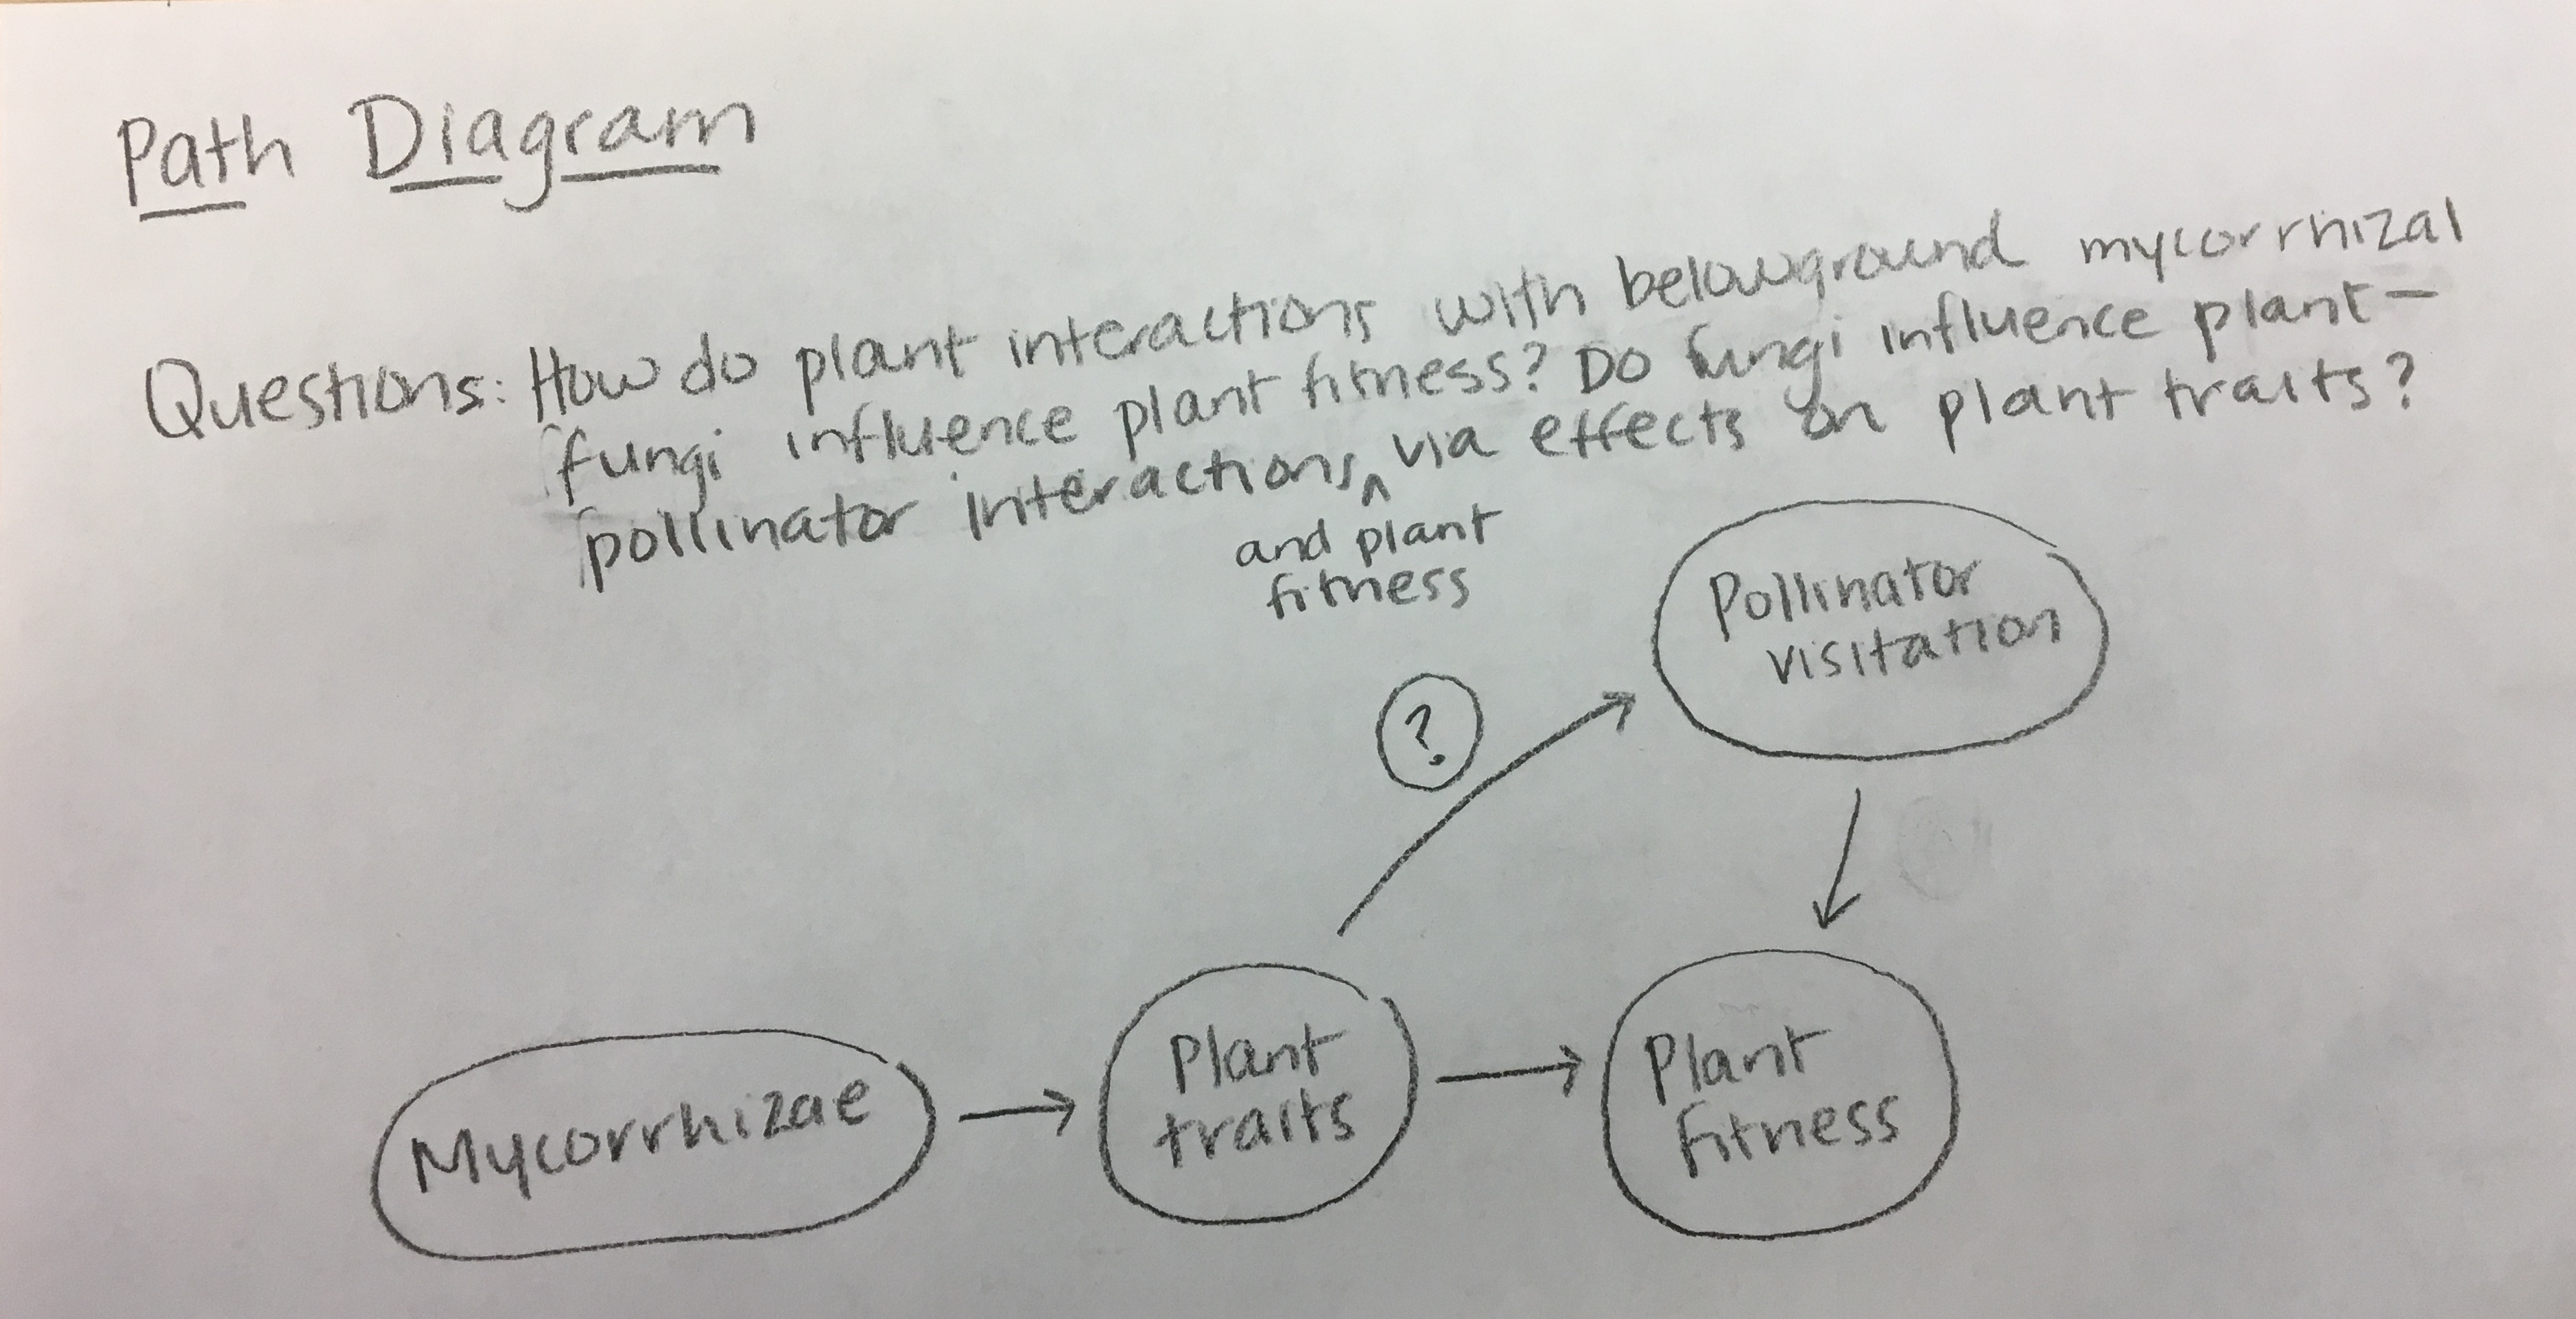 Path Diagram
Questions: How do plant interactions with belowground mycorrhizal
fungi influence plant fitness? Do fungi influence plant-
pollinator interactions ^ via effects on plant traits?
and plant
fitness
Pollinator
visitation
?
Mycorrhizae
Plant
traits
Plant
fitness